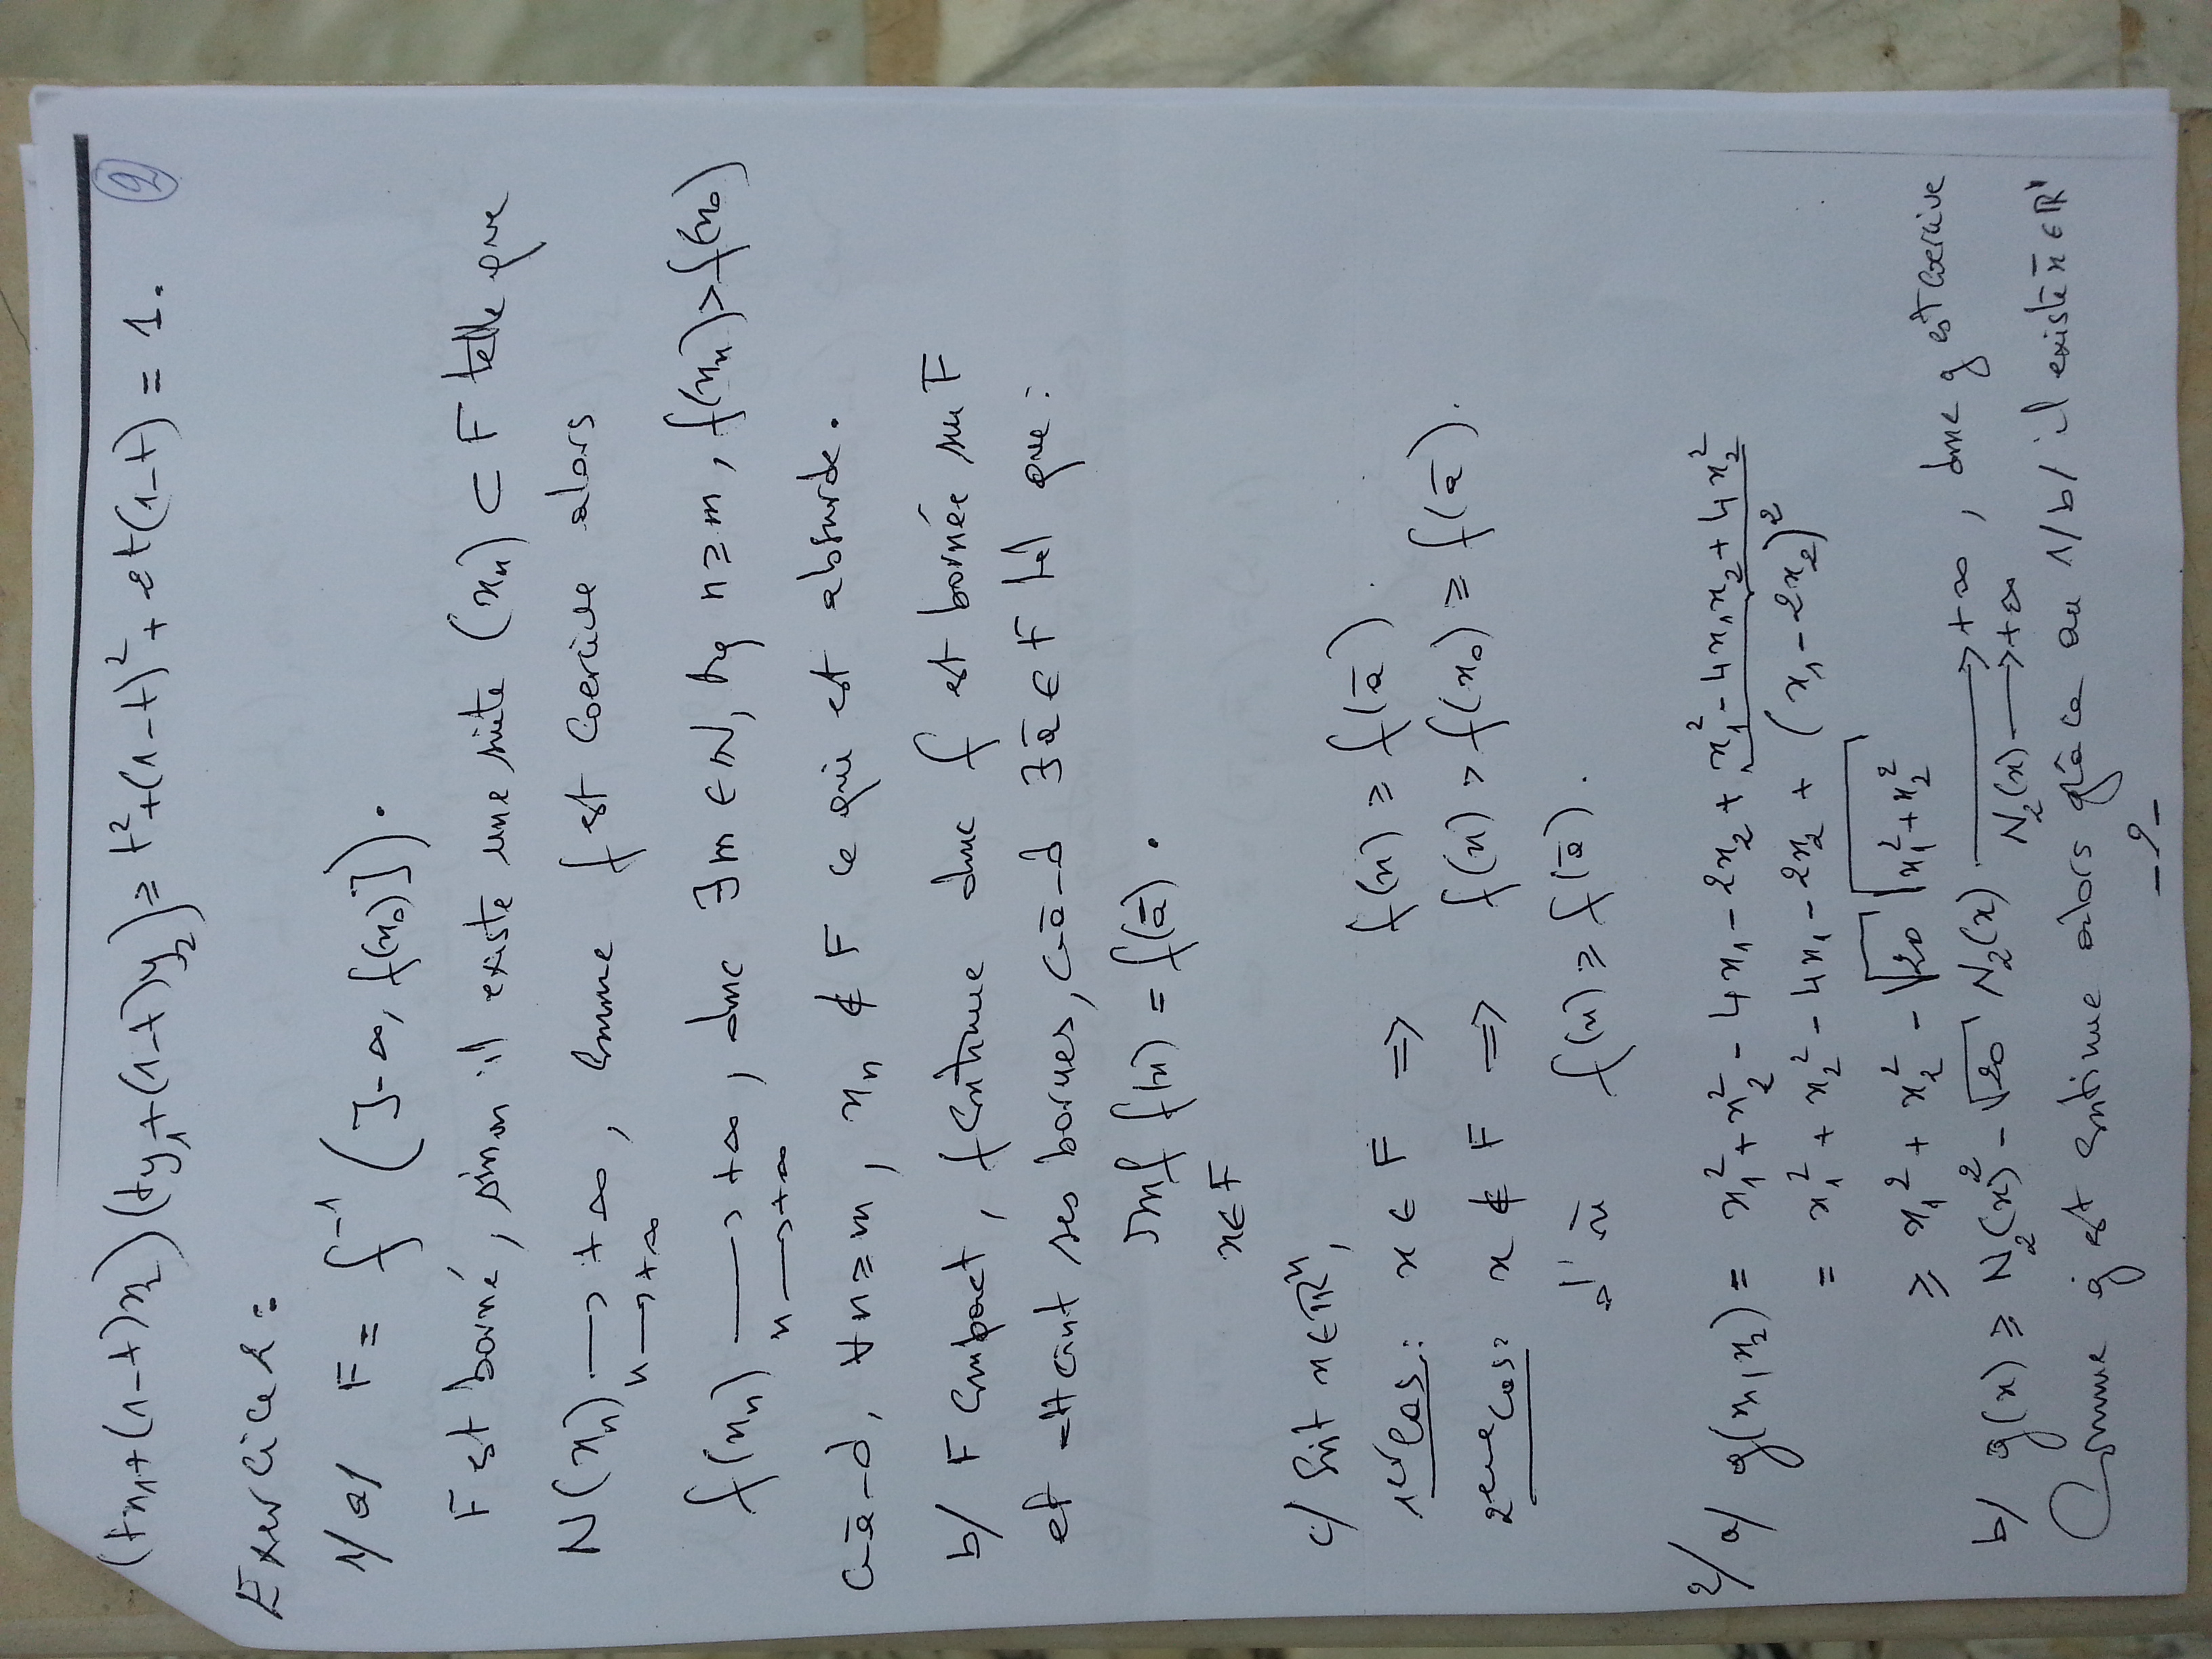 (tx₁+(1-t)x₂)(ty₁+(1-t)y₂) ≥ t²+(1-t)²+2t(1-t) = 1.
②
Exercice 2 :
1/ a/ F = f⁻¹(]-∞, f(x₀)]).
F est borné, sinon il existe une suite (xₙ) ⊂ F telle que
N(xₙ) → +∞, comme f est coercive alors
n → +∞
f(xₙ) → +∞, donc ∃ m ∈ ℕ, tq n ≥ m, f(xₙ) > f(x₀)
n → +∞
c-à-d, ∀ n ≥ m, xₙ ∉ F ce qui est absurde.
b/ F compact, f continue donc f est bornée sur F
et atteint ses bornes, c-à-d ∃ ā ∈ F tel que :
Inf f(x) = f(ā).
x ∈ F
c/ Soit x ∈ ℝⁿ,
1er cas : x ∈ F ⇒ f(x) ≥ f(ā).
2eme cas : x ∉ F ⇒ f(x) > f(x₀) ≥ f(ā).
d'où f(x) ≥ f(ā).
2/ a/ g(x₁,x₂) = x₁² + x₂² - 4x₁ - 2x₂ + x₁² - 4x₁x₂ + 4x₂²
= x₁² + x₂² - 4x₁ - 2x₂ + (x₁ - 2x₂)²
≥ x₁² + x₂² - √20 √(x₁² + x₂²)
b/ g(x) ≥ N₂(x)² - √20 N₂(x) → +∞, donc g est coercive
N₂(x) → +∞
Comme g est continue alors grâce au 1/b/ il existe x̄ ∈
-2-